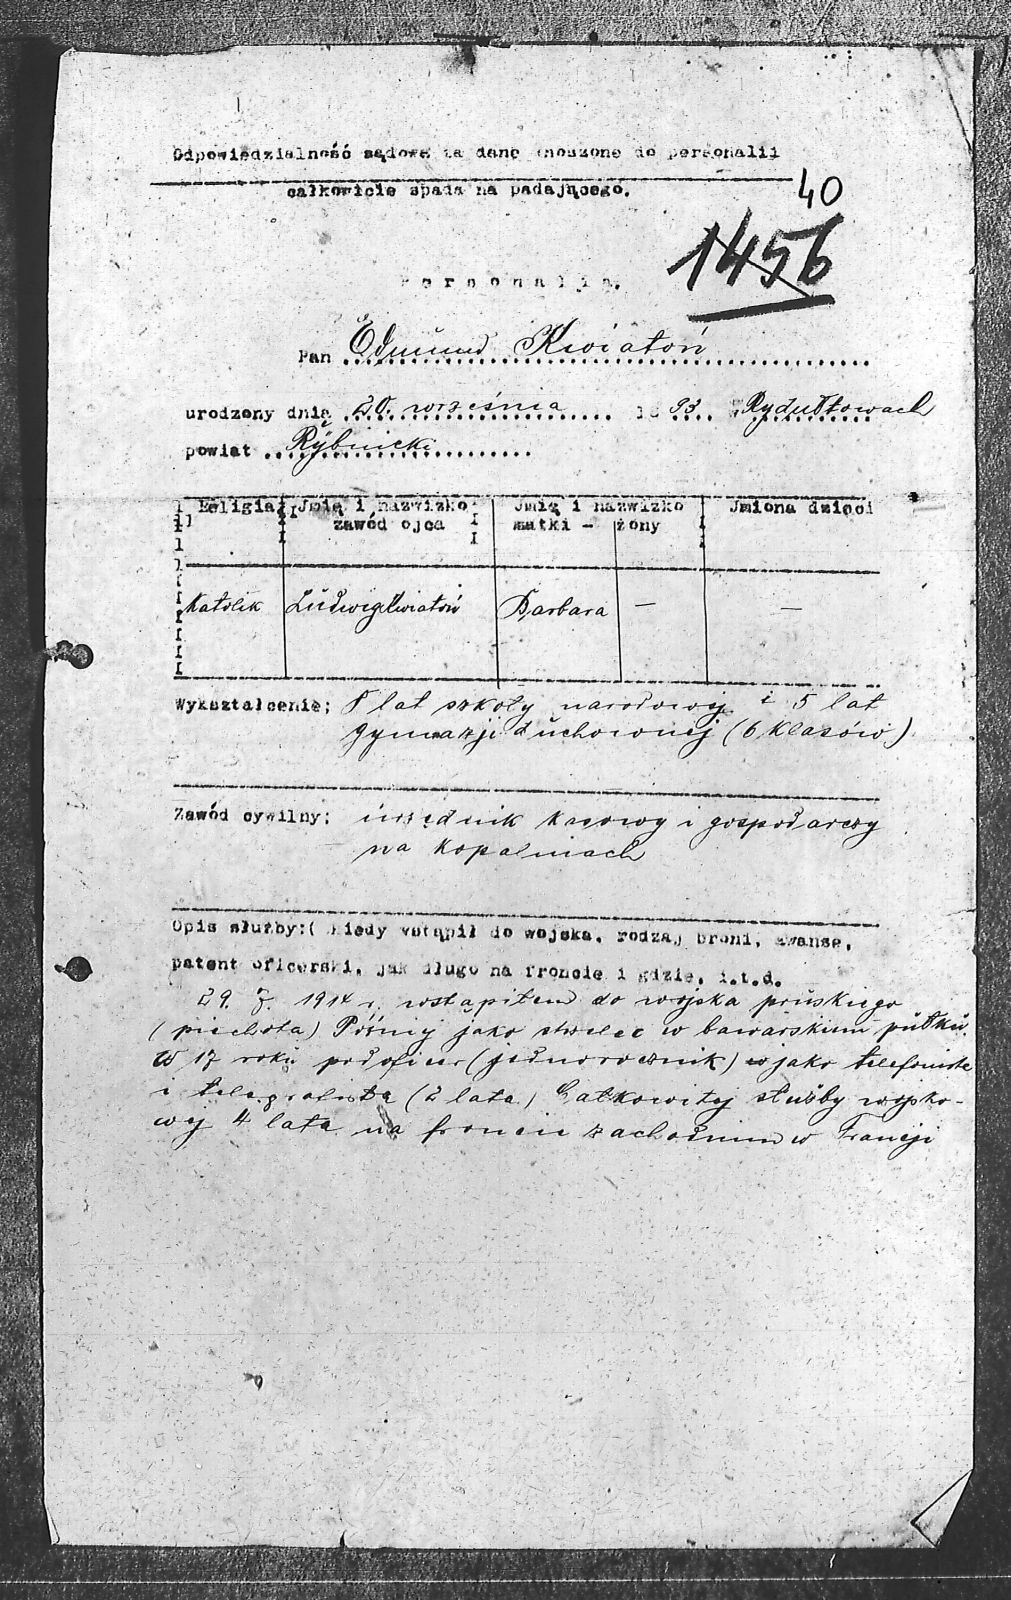 Odpowiedzialność sądowa za dane wnoszone do personalii
całkowicie spada na padającego.
40
1456
Personalia.
Pan Edmund Kwiatoń
urodzony dnia 20. września 1893 w Rydułtowach
powiat Rybnicki
Religia Jmię i nazwizko Jmię i nazwizko Jmiona dzieci
zawód ojca matki - żony
Katolik Ludwig Kwiatoń Barbara — —
Wykształcenie: 8 lat szkoły narodowej i 5 lat
gymnazji duchownej (6 klasów)
Zawód cywilny: urzędnik kasowy i gospodarczy
na kopalniach
Opis służby:( kiedy wstąpił do wojska, rodzaj broni, awanse,
patent oficerski, jak długo na froncie i gdzie, i.t.d.
29. 7. 1914 r. wstąpiłem do wojska pruskiego
(piechota) Później jako strzelec w bawarskim pułku.
W 17 roku podoficer (jednorocznik) jako telefonista
i telegrafista (2 lata) Całkowitej służby wojsko-
wej 4 lata na froncie zachodnim w Francji